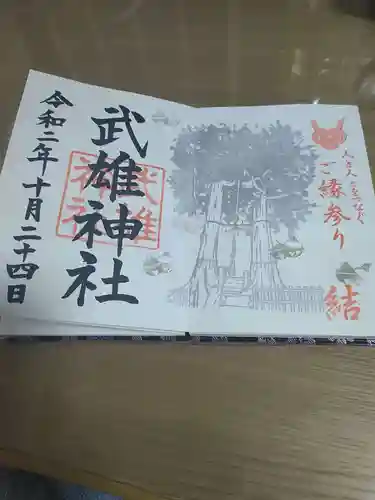 令和二年十月二十四日
武雄神社
武雄
神社
ご縁参り
結